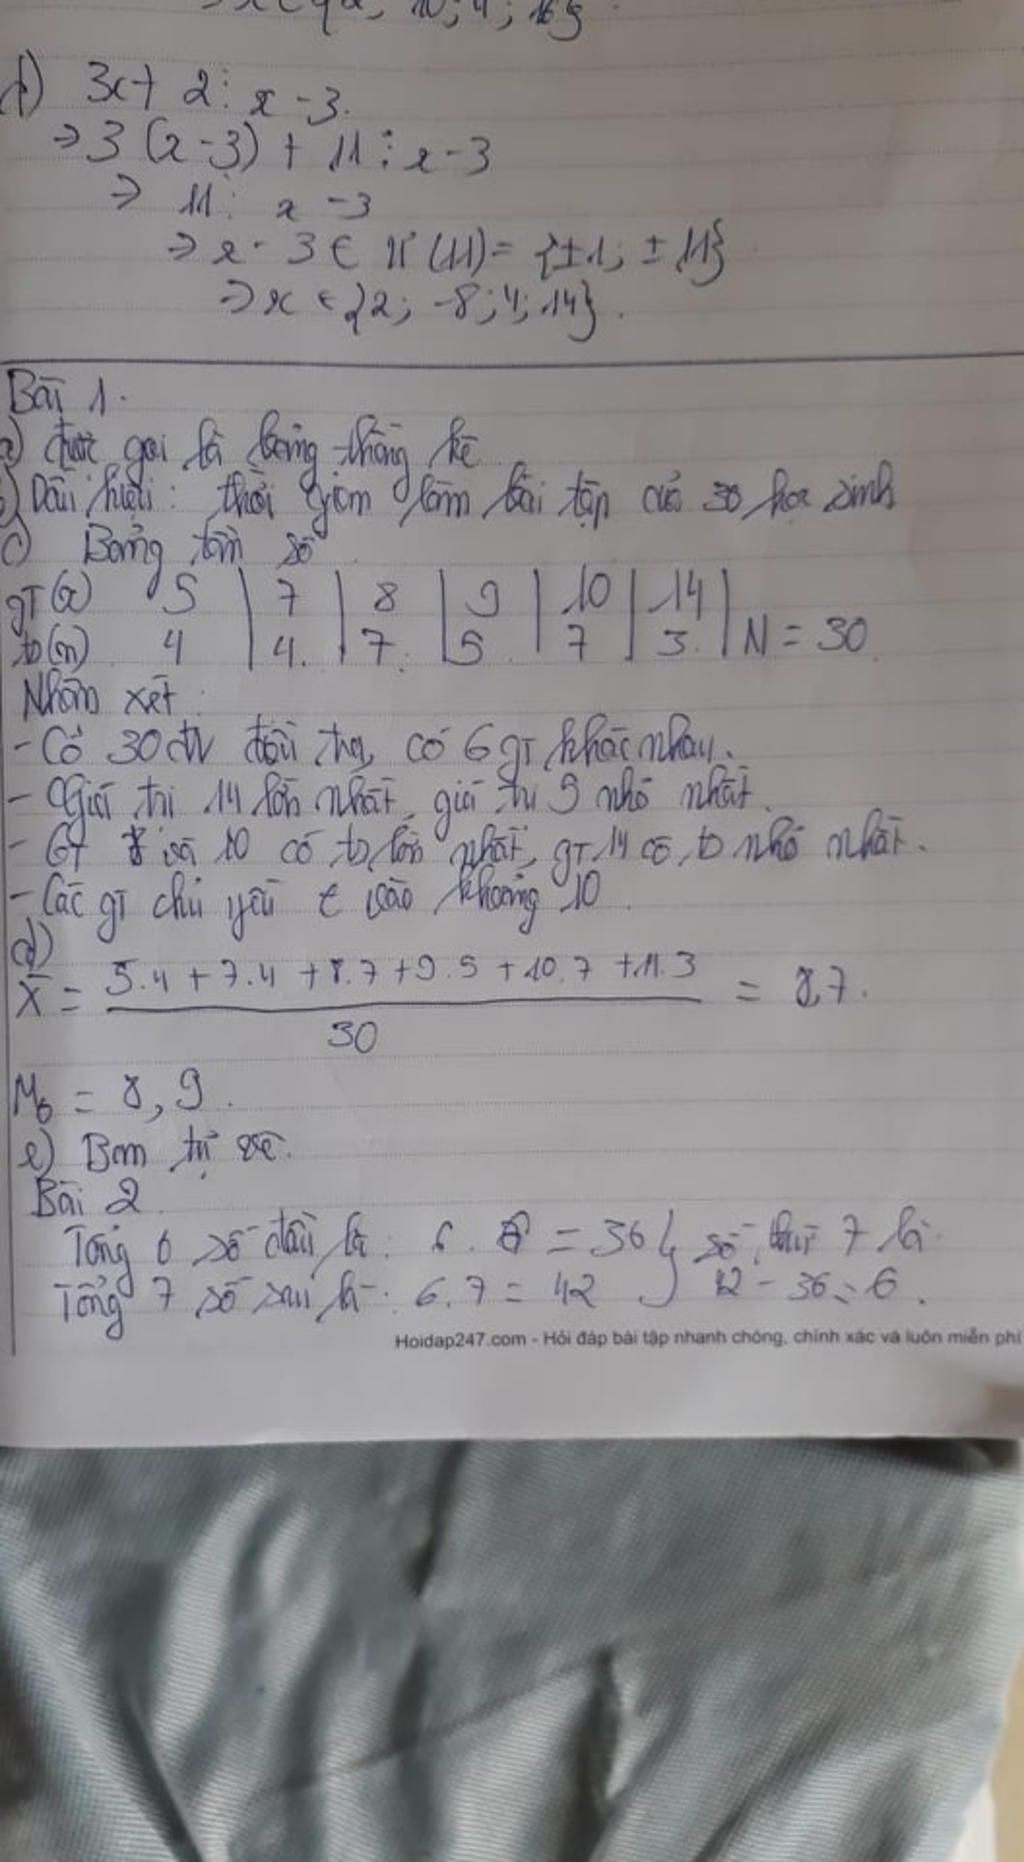 d) 3x + 2 ⋮ x - 3.
⇒ 3 (x - 3) + 11 ⋮ x - 3
⇒ 11 ⋮ x - 3
⇒ x - 3 ∈ Ư (11) = {±1; ±11}
⇒ x ∈ {2; -8; 4; 14}.
Bài 1.
a) được gọi là bảng thống kê
b) Dấu hiệu: thời gian làm bài tập của 30 học sinh
c) Bảng tần số
GT (x) 5 | 7 | 8 | 9 | 10 | 14 |
ts (n) 4 | 4. | 7. | 5 | 7 | 3. | N = 30
Nhận xét:
- Có 30 đv điều tra, có 6 gT khác nhau.
- Giá trị 14 lớn nhất, giá trị 5 nhỏ nhất.
- GT 8 và 10 có ts lớn nhất, gT 14 có ts nhỏ nhất.
- Các gT chủ yếu ∈ vào khoảng 10.
d)
X̄ = (5.4 + 7.4 + 8.7 + 9.5 + 10.7 + 11.3)/30 = 8,7.
M₀ = 8, 9.
e) Bạn tự vẽ.
Bài 2
Tổng 6 số đầu là: 6. 6 = 36 } số thứ 7 là
Tổng 7 số sau là: 6.7 = 42 } 42 - 36 = 6.
Hoidap247.com - Hỏi đáp bài tập nhanh chóng, chính xác và luôn miễn phí